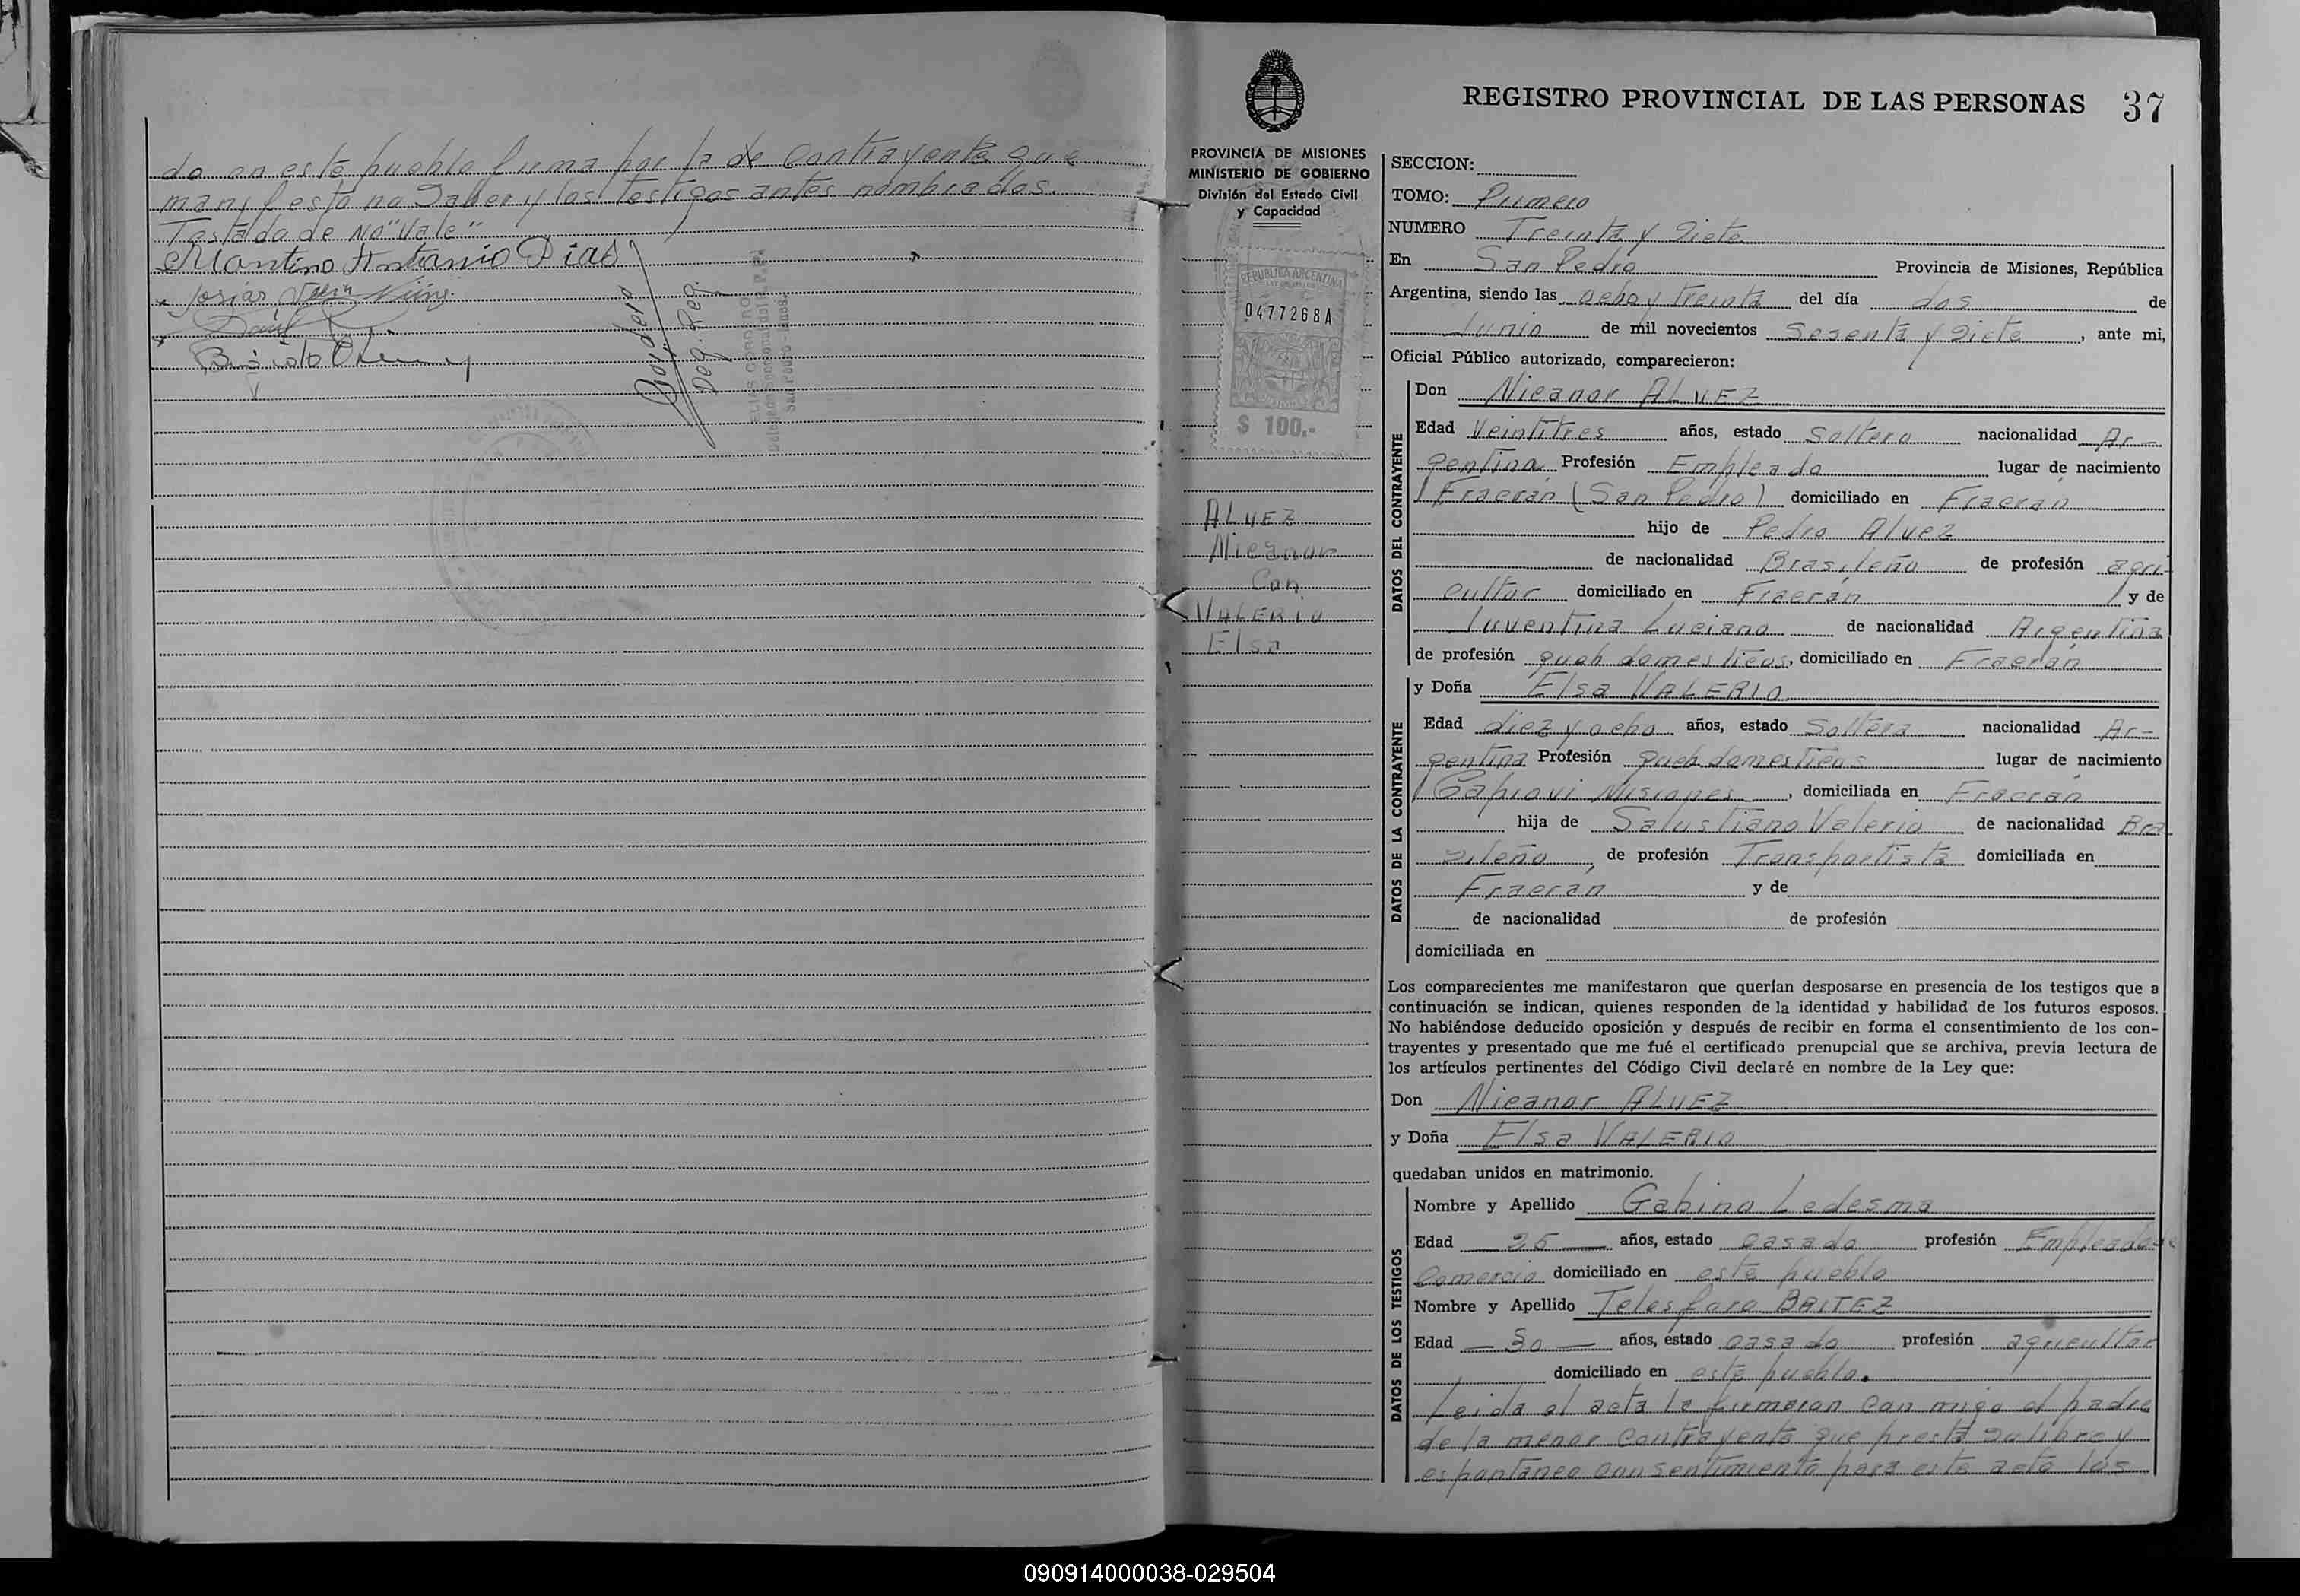 do en este pueblo firma por la de Contrayente que
manifesto no Saber y los testigos antes nombrados.
Testado de No "Vale"
Antonio Dias
Josías
REGISTRO PROVINCIAL DE LAS PERSONAS 37
PROVINCIA DE MISIONES
MINISTERIO DE GOBIERNO
División del Estado Civil
y Capacidad
REPUBLICA ARGENTINA
0477268A
$ 100.-
ALVEZ
Nicanor
Con
VALERIO
Elsa
SECCION:
TOMO: Primero
NUMERO Treinta y Siete
En San Pedro Provincia de Misiones, República
Argentina, siendo las ocho y treinta del día dos de
Junio de mil novecientos Sesenta y Siete, ante mi,
Oficial Público autorizado, comparecieron:
DATOS DEL CONTRAYENTE
Don Nicanor ALVEZ
Edad Veintitres años, estado Soltero nacionalidad Ar-
gentina Profesión Empleado lugar de nacimiento
Fracrán (San Pedro) domiciliado en Fracran
hijo de Pedro Alvez
de nacionalidad Brasileño de profesión agri-
cultor domiciliado en Fracrán y de
Juventina Luciano de nacionalidad Argentina
de profesión queh domesticos, domiciliado en Fracrán
DATOS DE LA CONTRAYENTE
y Doña Elsa VALERIO
Edad diez y ocho años, estado Soltera nacionalidad Ar-
gentina Profesión queh domesticos lugar de nacimiento
Capiovi Misiones, domiciliada en Fracrán
hija de Salustiano Valerio de nacionalidad Bra
sileño, de profesión Transportista domiciliada en
Fracrán y de
de nacionalidad de profesión
domiciliada en
Los comparecientes me manifestaron que querían desposarse en presencia de los testigos que a
continuación se indican, quienes responden de la identidad y habilidad de los futuros esposos.
No habiéndose deducido oposición y después de recibir en forma el consentimiento de los con-
trayentes y presentado que me fué el certificado prenupcial que se archiva, previa lectura de
los artículos pertinentes del Código Civil declaré en nombre de la Ley que:
Don Nicanor ALVEZ
y Doña Elsa VALERIO
quedaban unidos en matrimonio.
DATOS DE LOS TESTIGOS
Nombre y Apellido Gabino Ledesma
Edad — 25 — años, estado casado profesión Empleado de
Comercio domiciliado en este pueblo
Nombre y Apellido Telesforo BRITEZ
Edad — 30 — años, estado casado profesión agricultor
domiciliado en este pueblo.
Leida el acta la firmaron con migo el padre
de la menor contrayente que presta su libre y
espontaneo consentimiento para este acto los
090914000038-029504